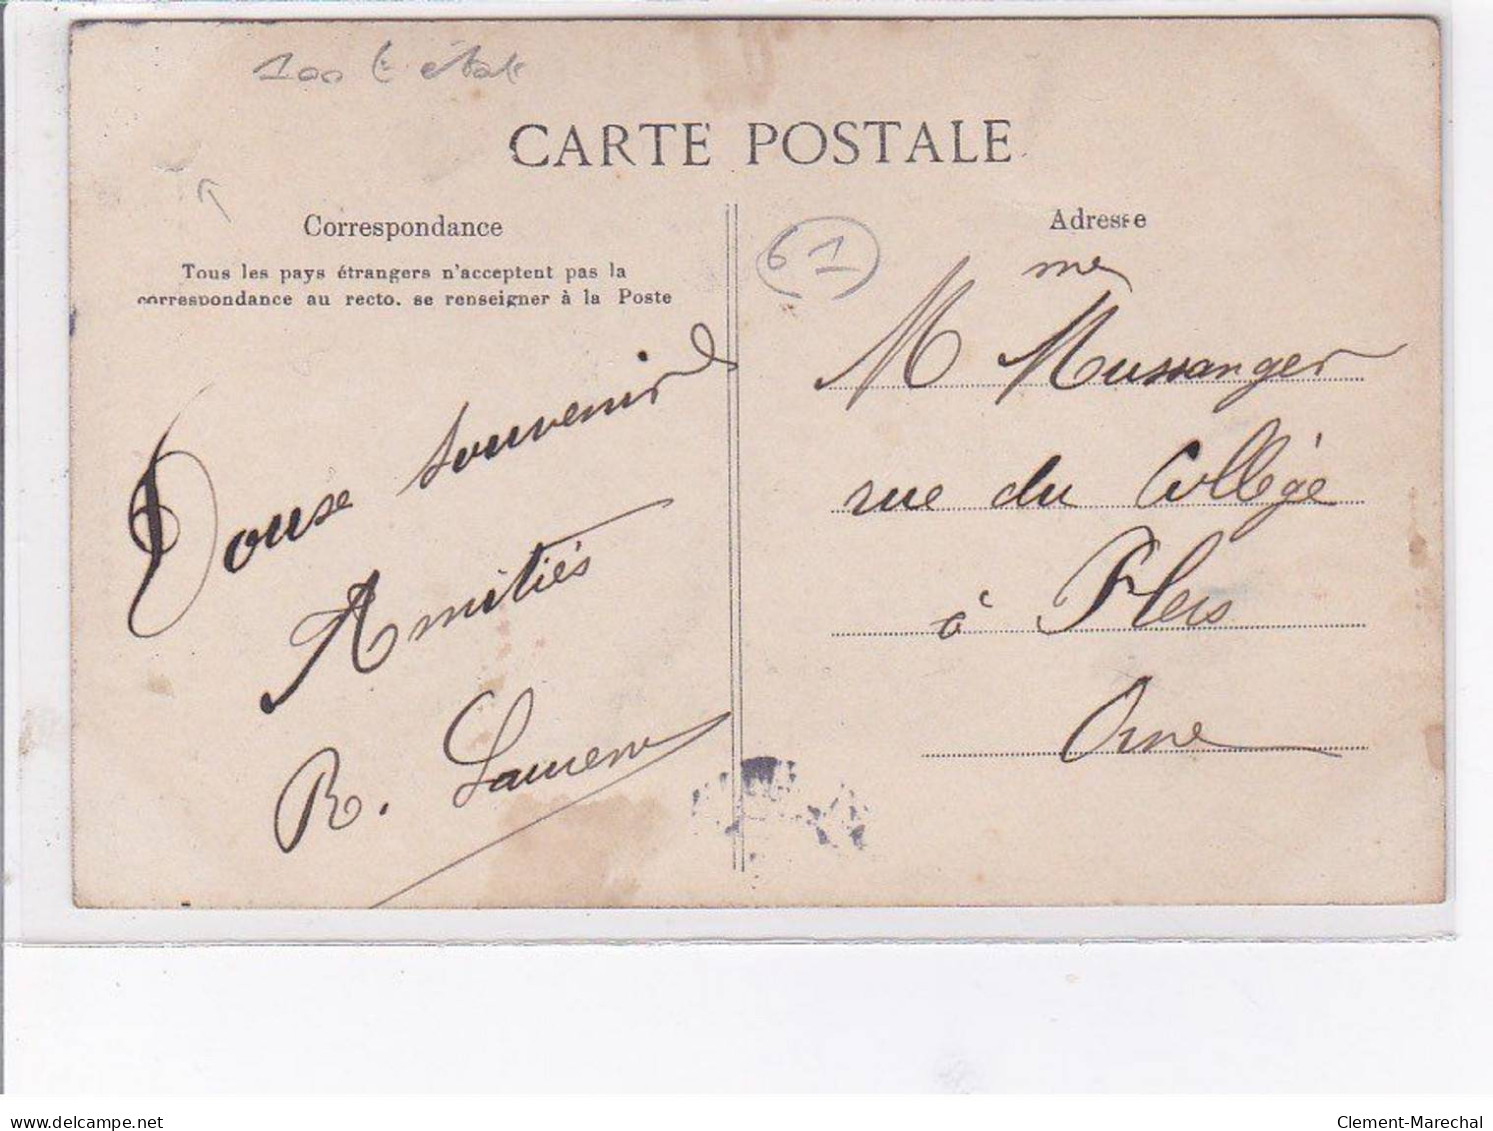 100 
CARTE POSTALE
Correspondance
Tous les pays étrangers n'acceptent pas la
correspondance au recto. se renseigner à la Poste
Douse souvenir
Amitiés
R. Laurent
61
Adresse
me
M Mussanger
rue du Collége
à Flers
Orne
delcampe.net
Clement-Marechal